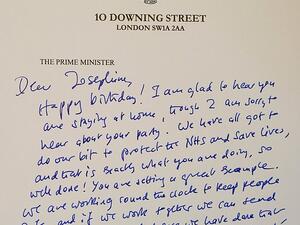 10 DOWNING STREET
LONDON SW1A 2AA
THE PRIME MINISTER
Dear Josephine,
Happy birthday! I am glad to hear you
are staying at home, though I am sorry to
hear about your party. We have all got to
do our bit to protect the NHS and save lives,
and that is exactly what you are doing, so
well done! You are setting a great example.
We are working round the clock to keep people
safe and if we work together we can send
have done that